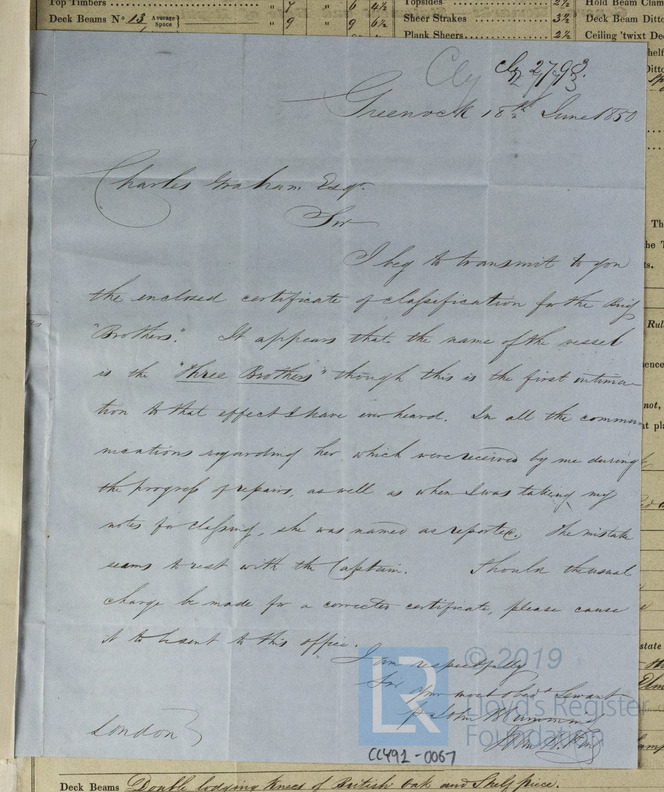 Top Timbers
Deck Beams No 13 Average Space
9 9 6½
Topsides 2½
Sheer Strakes 3½
Plank Sheers 2½
Hold Beam Clam
Deck Beam Ditto
Ceiling 'twixt De
Cly 2793
Greenock 18th June 1850
Charles Graham Esqr.
Sir
I beg to transmit to you
the enclosed certificate of classification for the Brig
"Brothers". It appears that the name of the vessel
is the "Three Brothers" though this is the first intima-
tion to that effect I have ever heard. In all the commu-
nications regarding her which were received by me during
the progress of repairs, as well as when I was taking my
notes for classing, she was named as reported. The mistake
seems to rest with the Captain. Should the usual
charge be made for a corrected certificate, please cause
it to be sent to this office.
I am respectfully
Sir
Your most obedt Servant
London
© 2019
LR
Lloyd's Register
Foundation
CC491-0067
Deck Beams Double lodging Knees of British Oak and Shelf piece.